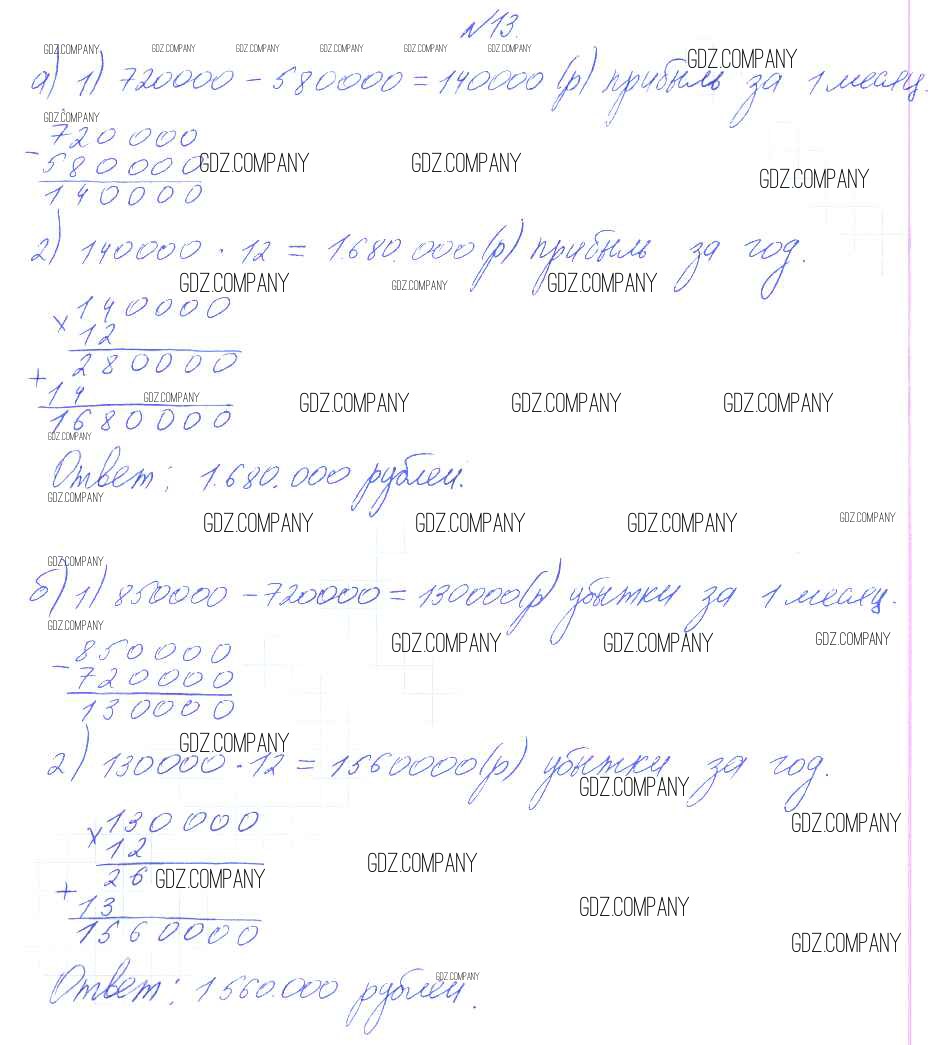 №13.
GDZ.COMPANY GDZ.COMPANY GDZ.COMPANY GDZ.COMPANY GDZ.COMPANY GDZ.COMPANY GDZ.COMPANY
а) 1) 720000 - 580000 = 140000 (р) прибыль за 1 месяц.
GDZ.COMPANY
720000
- 580000 GDZ.COMPANY GDZ.COMPANY GDZ.COMPANY
140000
2) 140000 · 12 = 1.680.000 (р) прибыль за год.
GDZ.COMPANY GDZ.COMPANY GDZ.COMPANY
140000
× 12
280000
+ 14 GDZ.COMPANY GDZ.COMPANY GDZ.COMPANY GDZ.COMPANY
1680000
GDZ.COMPANY
Ответ: 1.680.000 рублей.
GDZ.COMPANY
GDZ.COMPANY GDZ.COMPANY GDZ.COMPANY GDZ.COMPANY
GDZ.COMPANY
б) 1) 850000 - 720000 = 130000 (р) убытки за 1 месяц.
GDZ.COMPANY
850000 GDZ.COMPANY GDZ.COMPANY GDZ.COMPANY
- 720000
130000
GDZ.COMPANY
2) 130000 · 12 = 1560000 (р) убытки за год.
GDZ.COMPANY
130000 GDZ.COMPANY
× 12 GDZ.COMPANY
26 GDZ.COMPANY
+ 13 GDZ.COMPANY
1560000 GDZ.COMPANY
GDZ.COMPANY
Ответ: 1560.000 рублей.